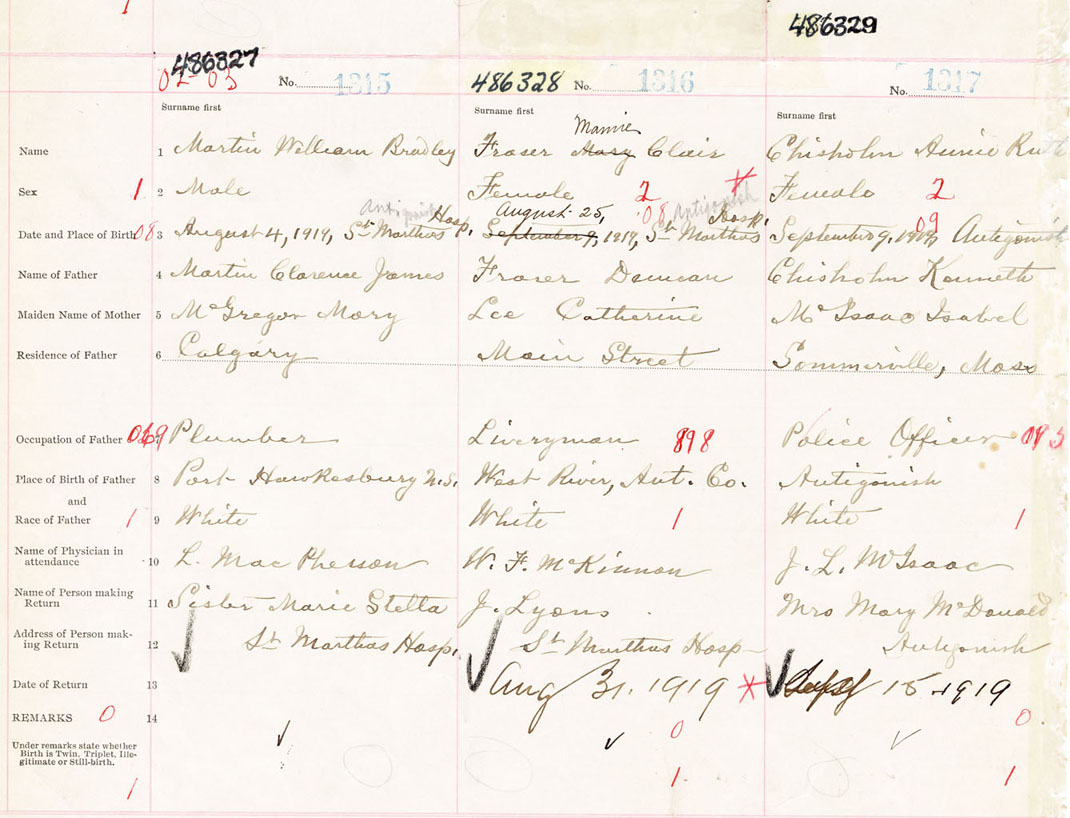 486329
486327 486328
02-03 No. 1315 No. 1316 No. 1317
Surname first Surname first Surname first
Mamie
Name 1 Martin William Bradley Fraser Mary Clair Chisholm Annie Ruth
Sex 1 2 Male Female 2 Female 2
Antigonish August 25, 08 Antigonish 09
Date and Place of Birth 08 3 August 4, 1919, St Marthas Hosp. September 9, 1919, St Marthas Hosp. September 9, 1919, Antigonish
Name of Father 4 Martin Clarence James Fraser Duncan Chisholm Kenneth
Maiden Name of Mother 5 McGregor Mary Lee Catherine McIsaac Isabel
Residence of Father 6 Calgary Main Street Sommerville, Mass
Occupation of Father 069 7 Plumber Liveryman 898 Police Officer
Place of Birth of Father 8 Port Hawkesbury N.S. West River, Ant. Co. Antigonish
and
Race of Father 1 9 White White 1 White 1
Name of Physician in
attendance 10 L. MacPherson W. F. McKinnon J. L. McIsaac
Name of Person making
Return 11 Sister Marie Stella J. Lyons Mrs Mary McDonald
Address of Person mak-
ing Return 12 St Marthas Hosp. St Marthas Hosp Antigonish
Date of Return 13 Aug 31. 1919 Sept 15 1919
REMARKS 0 14 0 0
Under remarks state whether
Birth is Twin, Triplet, Ille-
gitimate or Still-birth.
1 1 1